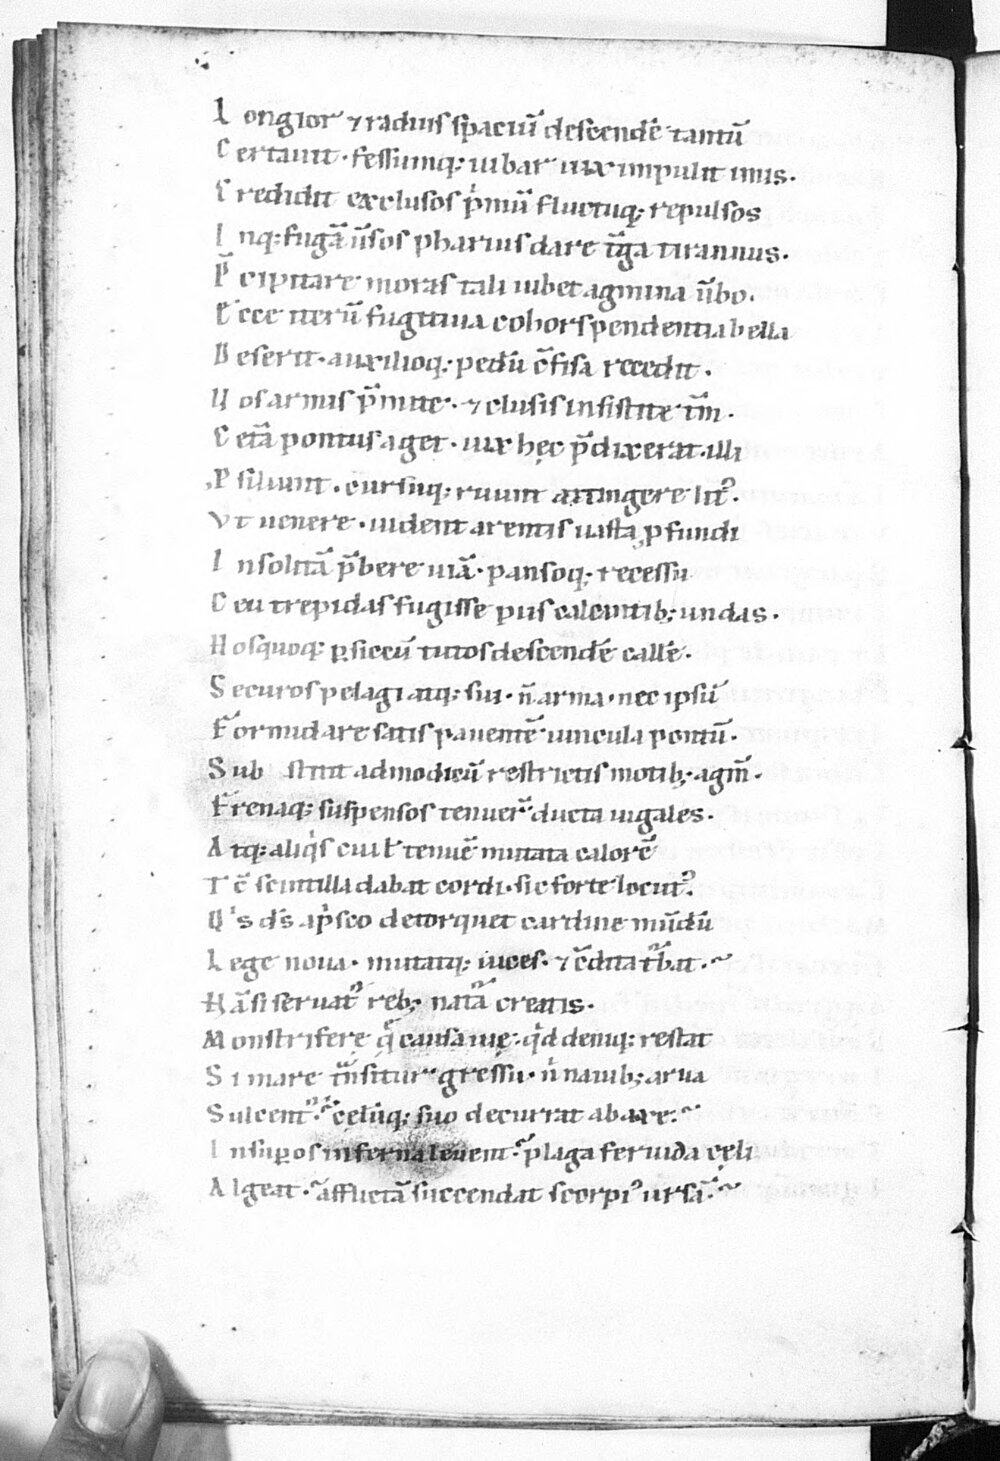 Longior ⁊ radius spaciū descendēs tantū
Certauit · fessumq; iubar uix impulit imis.
Credidit exclusos p̄miū fluctuq; repulsos
Inq; fugā ūsos pharius dare t̄ga tirannus.
P̄cipitare moras tali iubet agmina ūbo.
Ecce iterū fugitiua cohors pendentia bella
Deserit · auxilioq; pedū c̄fisa recedit.
Vos armis p̄mite · ⁊ clusis insistite t̄m.
Cetā pontus aget · uix hęc p̄dixerat · illi
Psiliunt · cursuq; ruunt attingere litꝰ.
Vt uenere · uident arentis uasta ꝓfundi
Insolitā p̄bere uiā · pansoq; recessu
Ceu trepidas fugisse piis calcantib; undas.
Hosquoq; ꝑ siccū tutos descendē callē.
Securos pelagi atq; sui · n̄ arma · nec ipsū
Formidare satis pauentē uincula pontū.
Substitit admodicū restrictis motib; agm̄.
Frenaq; suspensos tenuer̄ ducta iugales.
Atq; aliq̇s ciuil̄ tenuē mutata calorē
Tc̄ scintilla dabat cordi · sic forte locutꝰ.
Qis ds̄ aṗsco detorquet cardine mūdū
Lege noua · mutatq; uices · ⁊ c̄dita t̄bat ·
Hā si seruatʳ reb; natā creatis.
Monstriferę q̄ causa uię · q̇d deniq; restat
Si mare t̄nsitur gressu · n̄ nauib; arua
Sulcentʳ · cęlūq; suo decurrat abaxe ·
Insuꝑos inferna leuent · plaga feruida cęli
Algeat · afflictā succendat scorpiꝰ ursā ·